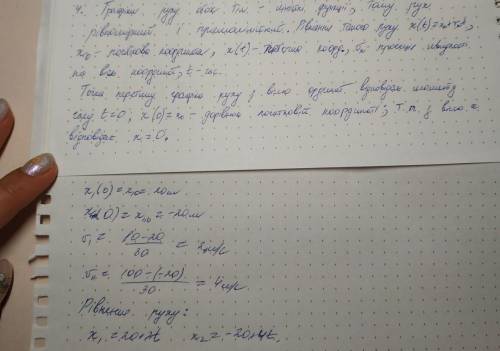 4. Графіки руху обох т.т. - лінійні функції, тому рух
рівномірний і прямолінійний. Рівняння такого руху: x(t)=x₀+υₓt,
x₀ - початкова координата, x(t) - коорд., υₓ проекція швидкості
на вісь координат, t - час.
Точка перетину графіка руху з віссю ординат відповідає моменту
часу t=0; x(0)=x₀ - дорівнює початковій координаті; т.п. з віссю
відповідає x=0.
x₁(0)=x₁₀=20м
x₂(0)=x₂₀=-20м
υ₁= (80-20)/30 = 2м/с
υ₂= (100-(-20))/30 = 4м/с
Рівняння руху:
x₁=20+2t x₂=-20+4t.